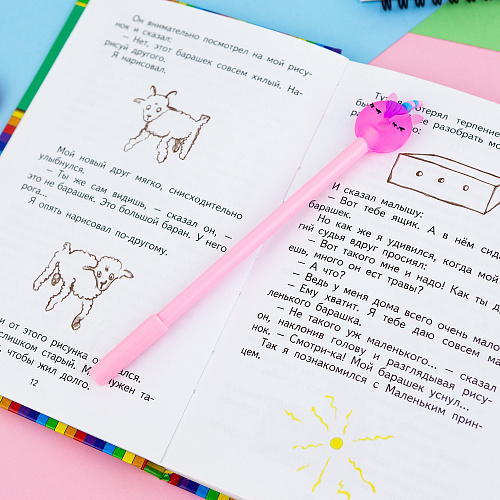 Он внимательно посмотрел на мой рису-
нок и сказал:
— Нет, этот барашек совсем хилый. На-
рисуй другого.
Я нарисовал.
Мой новый друг мягко, снисходительно
улыбнулся.
— Ты же сам видишь, — сказал он, —
это не барашек. Это большой баран. У него
рога...
Я опять нарисовал по-другому.
от этого рисунка
слишком старый.
нужен та-
чтобы жил долго.
12
Тут я потерял терпение
разобрать мо
И сказал малышу:
— Вот тебе ящик. А в нём сиди
барашек.
Но как же я удивился, когда мой
гий судья вдруг просиял:
— Вот такого мне и надо! Как ты д
ешь, много он ест травы?
— А что?
— Ведь у меня дома всего очень мало
— Ему хватит. Я тебе даю совсем ма
ленького барашка.
— Не такого уж маленького... — сказал
он, наклонив голову и разглядывая рису-
нок. — Смотри-ка! Мой барашек уснул...
Так я познакомился с Маленьким прин-
цем.